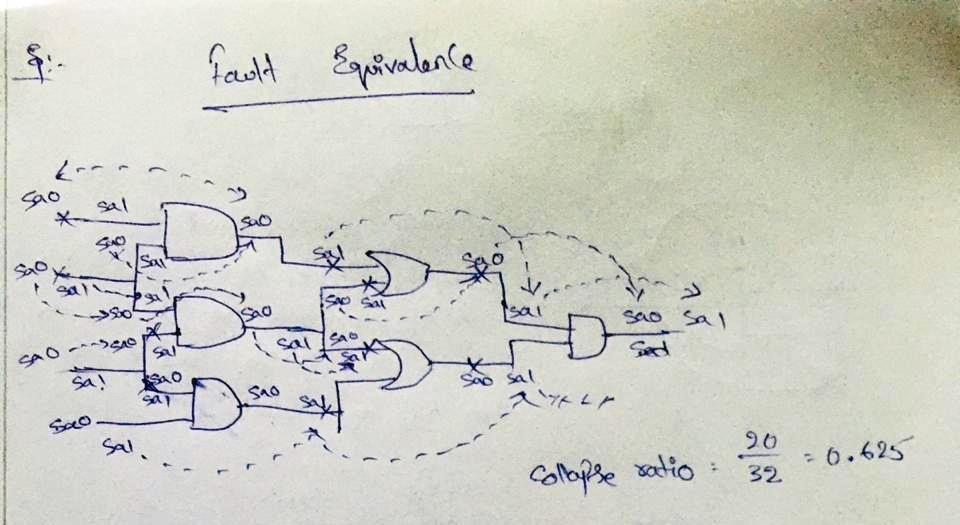 Q:-
Fault Equivalence
sa0
sa1
sa0
sa0
sa1
sa0
sa1
sa0
sa1
sa1
sa0
sa0
sa1
sa0
sa1
sa0
sa1
sa0
sa1
sa0
sa1
sa0
sa1
sa0
sa1
sa0
sa1
sa0
sa1
sa0
sa1
sa0 sa1
Collapse ratio = 20/32 = 0.625